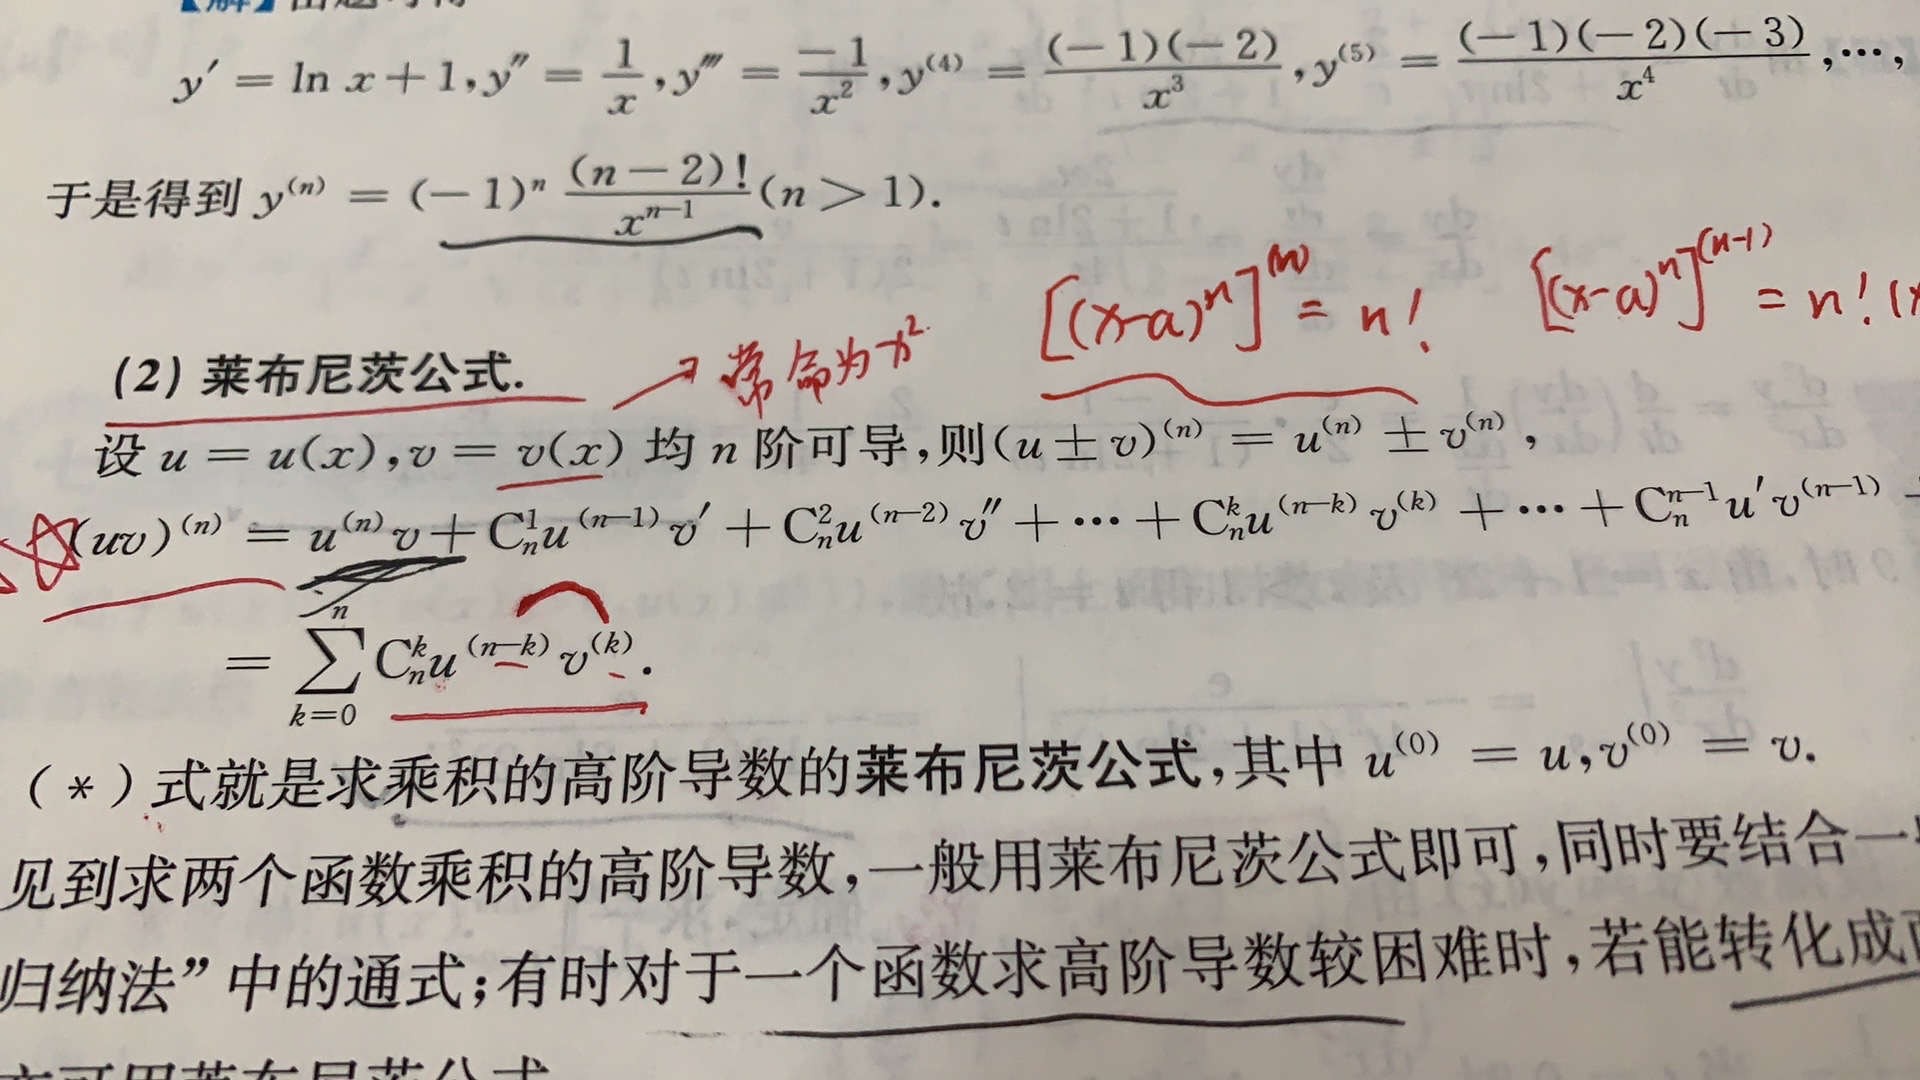 【解】由题可得
y′ = ln x + 1, y″ = 1/x, y‴ = −1/x², y⁽⁴⁾ = (−1)(−2)/x³, y⁽⁵⁾ = (−1)(−2)(−3)/x⁴, ⋯,
于是得到 y⁽ⁿ⁾ = (−1)ⁿ (n−2)!/xⁿ⁻¹ (n > 1).
[(x-a)ⁿ]⁽ⁿ⁾ = n! [(x-a)ⁿ]⁽ⁿ⁻¹⁾ = n! (x
(2) 莱布尼茨公式. → 常命为x²
设 u = u(x), v = v(x) 均 n 阶可导, 则(u ± v)⁽ⁿ⁾ = u⁽ⁿ⁾ ± v⁽ⁿ⁾,
(uv)⁽ⁿ⁾ = u⁽ⁿ⁾v + Cₙ¹u⁽ⁿ⁻¹⁾v′ + Cₙ²u⁽ⁿ⁻²⁾v″ + ⋯ + Cₙᵏu⁽ⁿ⁻ᵏ⁾v⁽ᵏ⁾ + ⋯ + Cₙⁿ⁻¹u′v⁽ⁿ⁻¹⁾ +
= ∑_{k=0}^{n} Cₙᵏu⁽ⁿ⁻ᵏ⁾v⁽ᵏ⁾.
(*)式就是求乘积的高阶导数的莱布尼茨公式,其中 u⁽⁰⁾ = u, v⁽⁰⁾ = v.
见到求两个函数乘积的高阶导数,一般用莱布尼茨公式即可,同时要结合一
归纳法”中的通式;有时对于一个函数求高阶导数较困难时,若能转化成
可用莱布尼茨公式